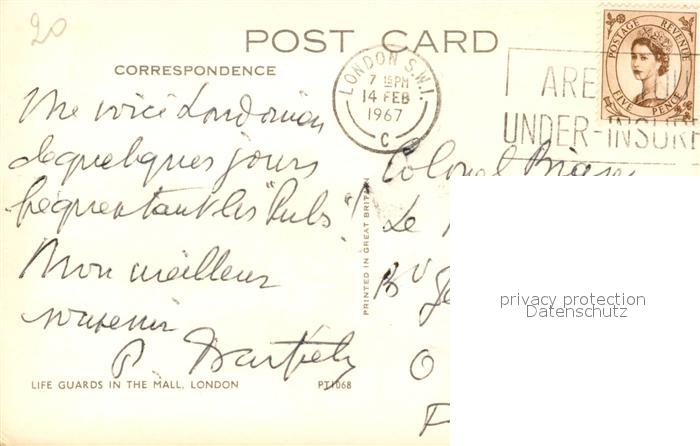 20
POST CARD
CORRESPONDENCE
POSTAGE REVENUE
FIVE PENCE
LONDON S.W.1.
7 15 PM
14 FEB
1967
C
ARE
UNDER-INSURE
Me voici Londonien
de quelques jours
fréquentant les "Pubs"!
Mon meilleur
souvenir
P.
Colonel
Le
Bd
O
F
PRINTED IN GREAT BRITAIN
LIFE GUARDS IN THE MALL, LONDON
PT1068
privacy protection
Datenschutz